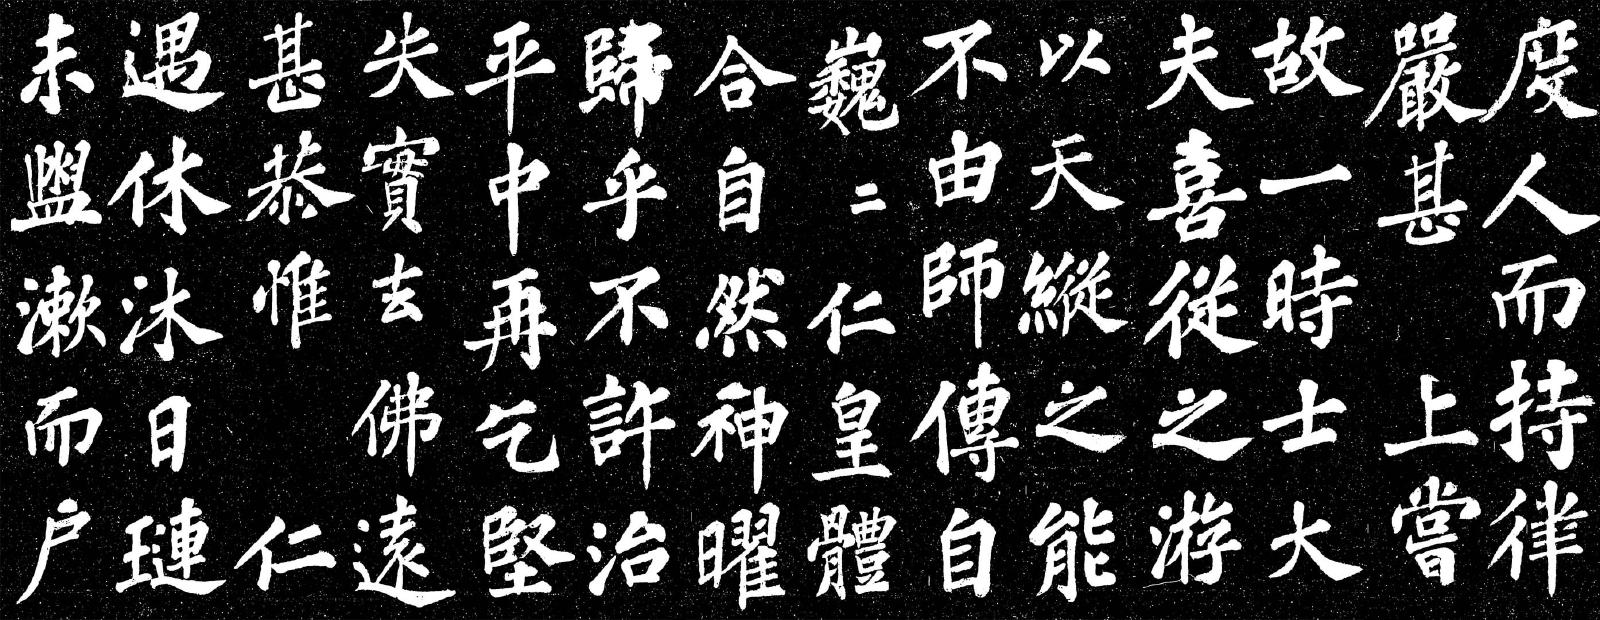 度人而持律
嚴甚上嘗
故一時士大
夫喜從之游
以天縱之能
不由師傳自
巍二仁皇體
合自然神曜
歸乎不許治
平中再乞堅
失實去佛遠
甚恭惟仁
遇休沐日璉
未盥漱而户